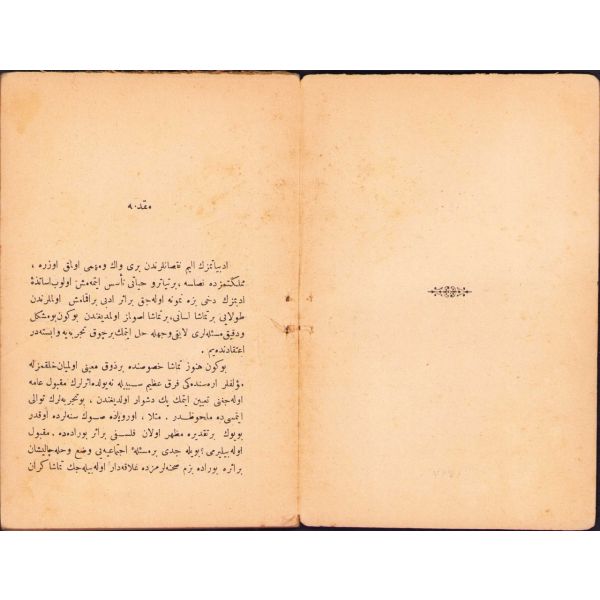 مقدمه
ادبیاتمزك الیم نقصانلرندن بری واك مهمی اولمق اوزره ،
مملكتمزده نصلسه ، برتیاترو حیاتی تأسس ایتمه‌مش اولوب اساتذهٔ
ادبمزك دخی بزه نمونه اوله‌جق براثر ادبی براقمامش اولملرندن
طولایی برتماشا لسانی، برتماشا اصولمز اولمدیغندن بوكون بومشكل
ودقیق مسئله‌لری لایق وجهله حل ایتمك برچوق تجربه‌یه وابسته‌در
اعتقادنده‌یم .
بوكون هنوز تماشا خصوصنده برذوق معینی اولمیان خلقمزله
مؤلفلر اره‌سنده‌كی فرق عظیم سببیله نه‌یولده اثرلرك مقبول عامه
اوله‌جغنی تعیین ایتمك پك دشوار اولدیغندن ، بوتجربه‌لرك توالی
ایتمسی‌ده ملحوظدر . مثلا ، اوروپاده صوك سنه‌لرده اوقدر
بویوك برتقدیره مظهر اولان فلسفی براثر بوراده‌ده . مقبول
اوله‌بیلیرمی ؟ بویله جدی برمسئلهٔ اجتماعیه‌یی وضع وحله چالیشان
براثره بوراده بزم صحنه‌لرمزده علاقه‌دار اوله‌بیله‌جك تماشاكران